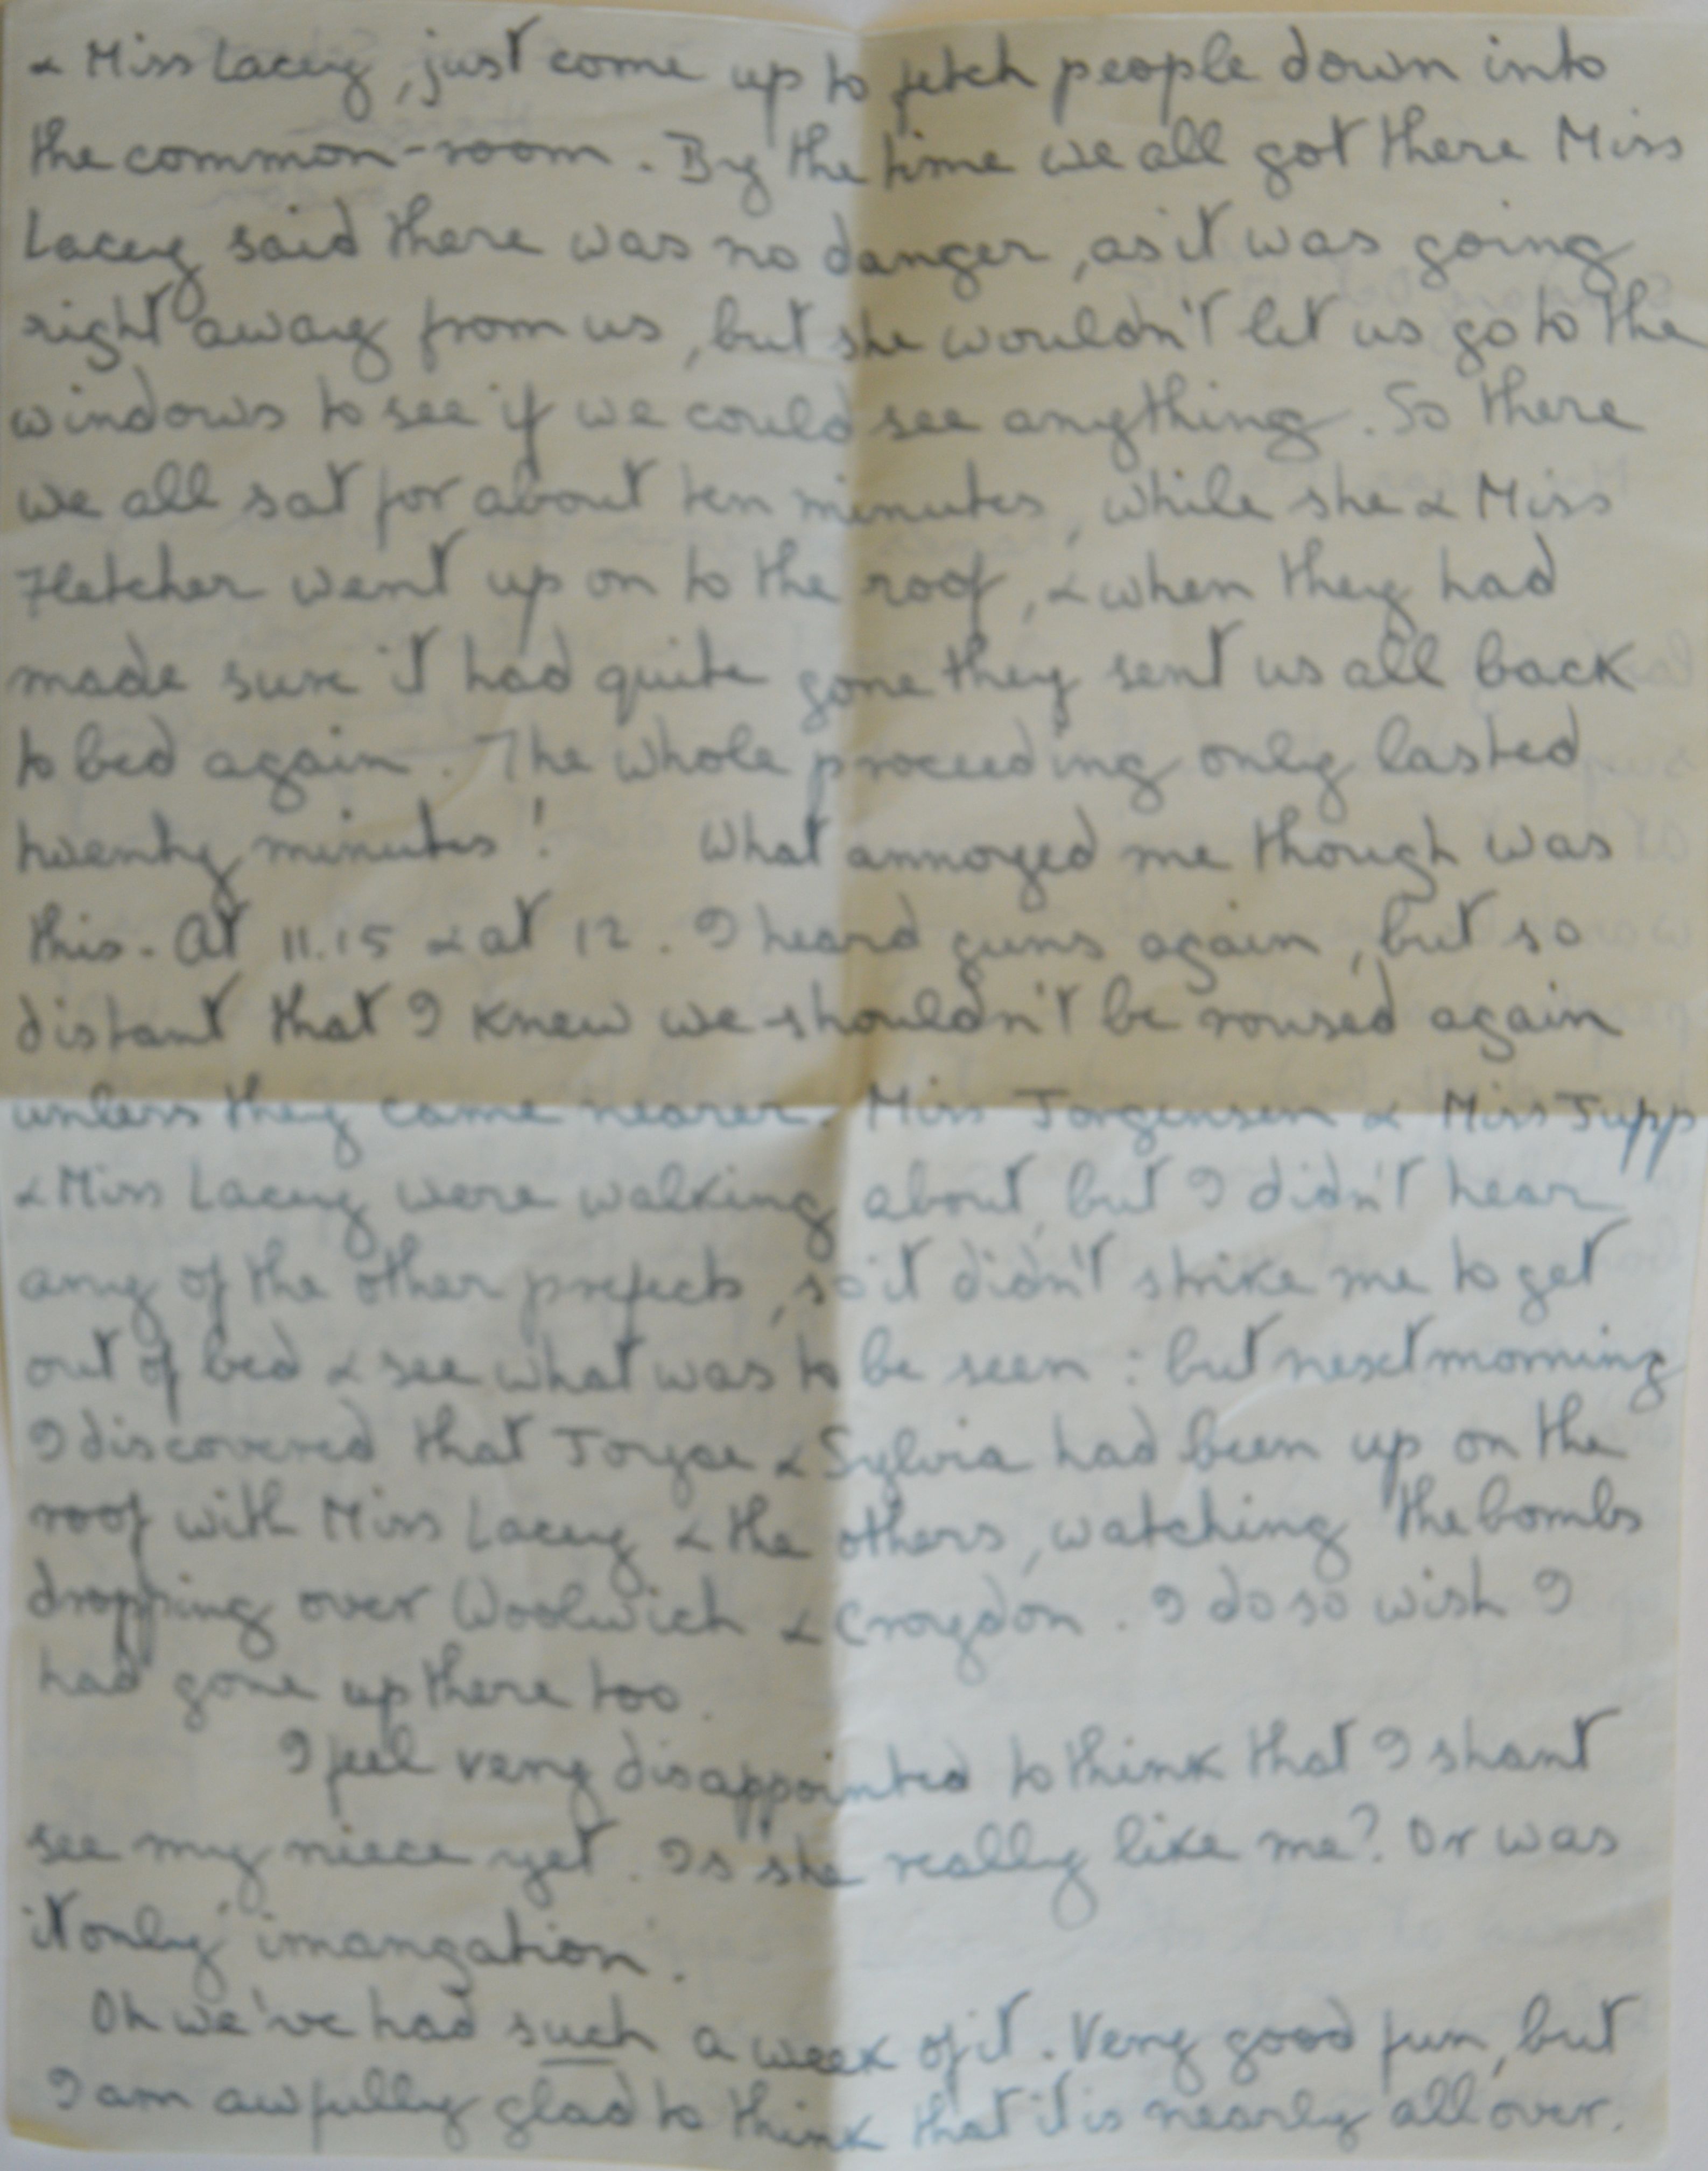 & Miss Lacey, just come up to fetch people down into
the common-room. By the time we all got there Miss
Lacey said there was no danger, as it was going
right away from us, but she wouldn't let us go to the
windows to see if we could see anything. So there
we all sat for about ten minutes, while she & Miss
Fletcher went up on to the roof, & when they had
made sure it had quite gone they sent us all back
to bed again. The whole proceeding only lasted
twenty minutes! What annoyed me though was
this. At 11.15 & at 12. I heard guns again, but so
distant that I knew we shouldn't be roused again
unless they came nearer. Miss Jorgensen & Miss Jupp
& Miss Lacey were walking about, but I didn't hear
any of the other prefects, so it didn't strike me to get
out of bed & see what was to be seen: but next morning
I discovered that Joyce & Sylvia had been up on the
roof with Miss Lacey & the others, watching the bombs
dropping over Woolwich & Croydon. I do so wish I
had gone up there too.
I feel very disappointed to think that I shant
see my niece yet. Is she really like me? Or was
it only imangation.
Oh we've had such a week of it. Very good fun, but
I am awfully glad to think that it is nearly all over.